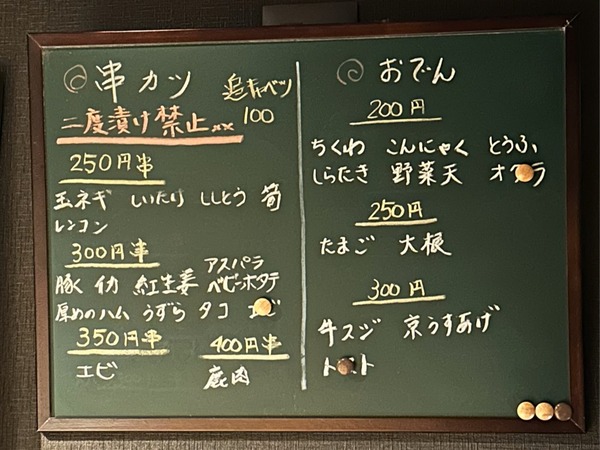 串カツ
追キャベツ
100
二度漬け禁止
250円串
玉ネギ しいたけ ししとう 筍
レンコン
300円串
アスパラ
豚 イカ 紅生姜 ベビーホタテ
厚めのハム うずら タコ
350円串
エビ
400円串
鹿肉
おでん
200円
ちくわ こんにゃく とうふ
しらたき 野菜天
250円
たまご 大根
300円
牛スジ 京うすあげ